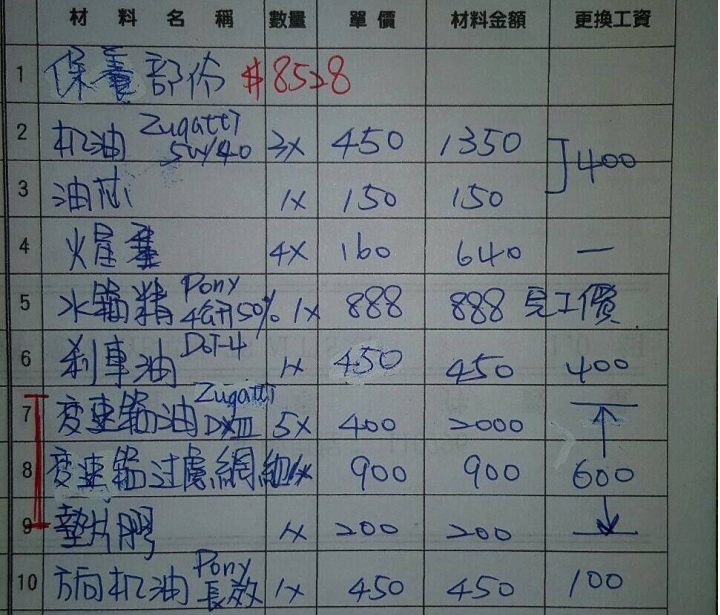 材料名稱 數量 單價 材料金額 更換工資
1 保養部份 $8528
2 机油 Zugatti 5W/40 3x 450 1350 400
3 油芯 1x 150 150
4 火星塞 4x 160 640 —
5 水箱精 Pony 50% 1x 888 888 工資
6 剎車油 DOT-4 1x 450 450 400
7 变速箱油 Zugatti DXIII 5x 400 2000
8 变速箱过濾網 1x 900 900 600
9 墊片膠 1x 200 200
10 方向机油 Pony 長效 1x 450 450 100